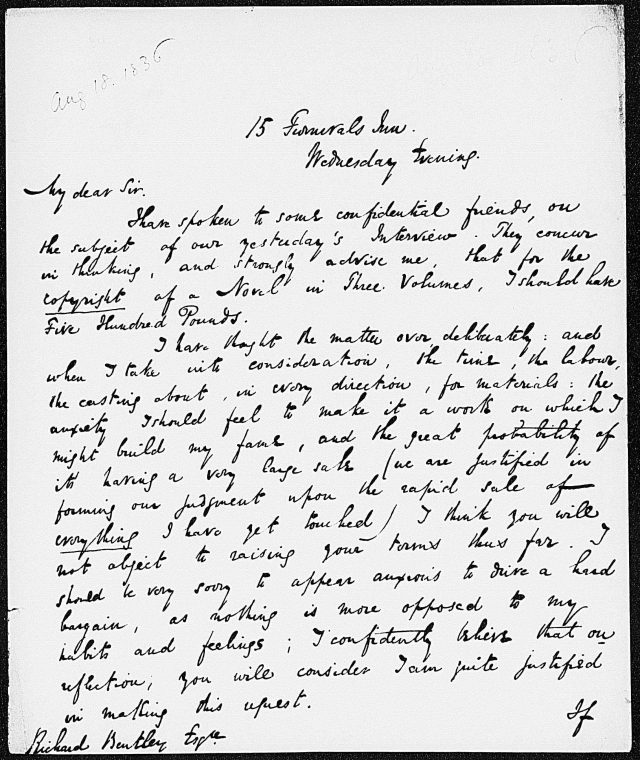 Aug 18. 1836
15 Furnivals Inn.
Wednesday Evening.
My dear Sir.
I have spoken to some confidential friends, on
the subject of our yesterday's Interview. They concur
in thinking, and strongly advise me, that for the
copyright of a Novel in Three Volumes, I should have
Five Hundred Pounds.
I have thought the matter over, deliberately: and
when I take into consideration, the time, the labour,
the casting about, in every direction, for materials: the
anxiety I should feel to make it a work on which I
might build my fame, and the great probability of
its having a very large sale (we are justified in
forming our judgment upon the rapid sale of
everything I have yet touched) I think you will
not object to raising your terms thus far. I
should be very sorry to appear anxious to drive a hard
bargain, as nothing is more opposed to my
habits and feelings; I confidently believe that on
reflection, you will consider I am quite justified
in making this request.
If
Richard Bentley Esqre